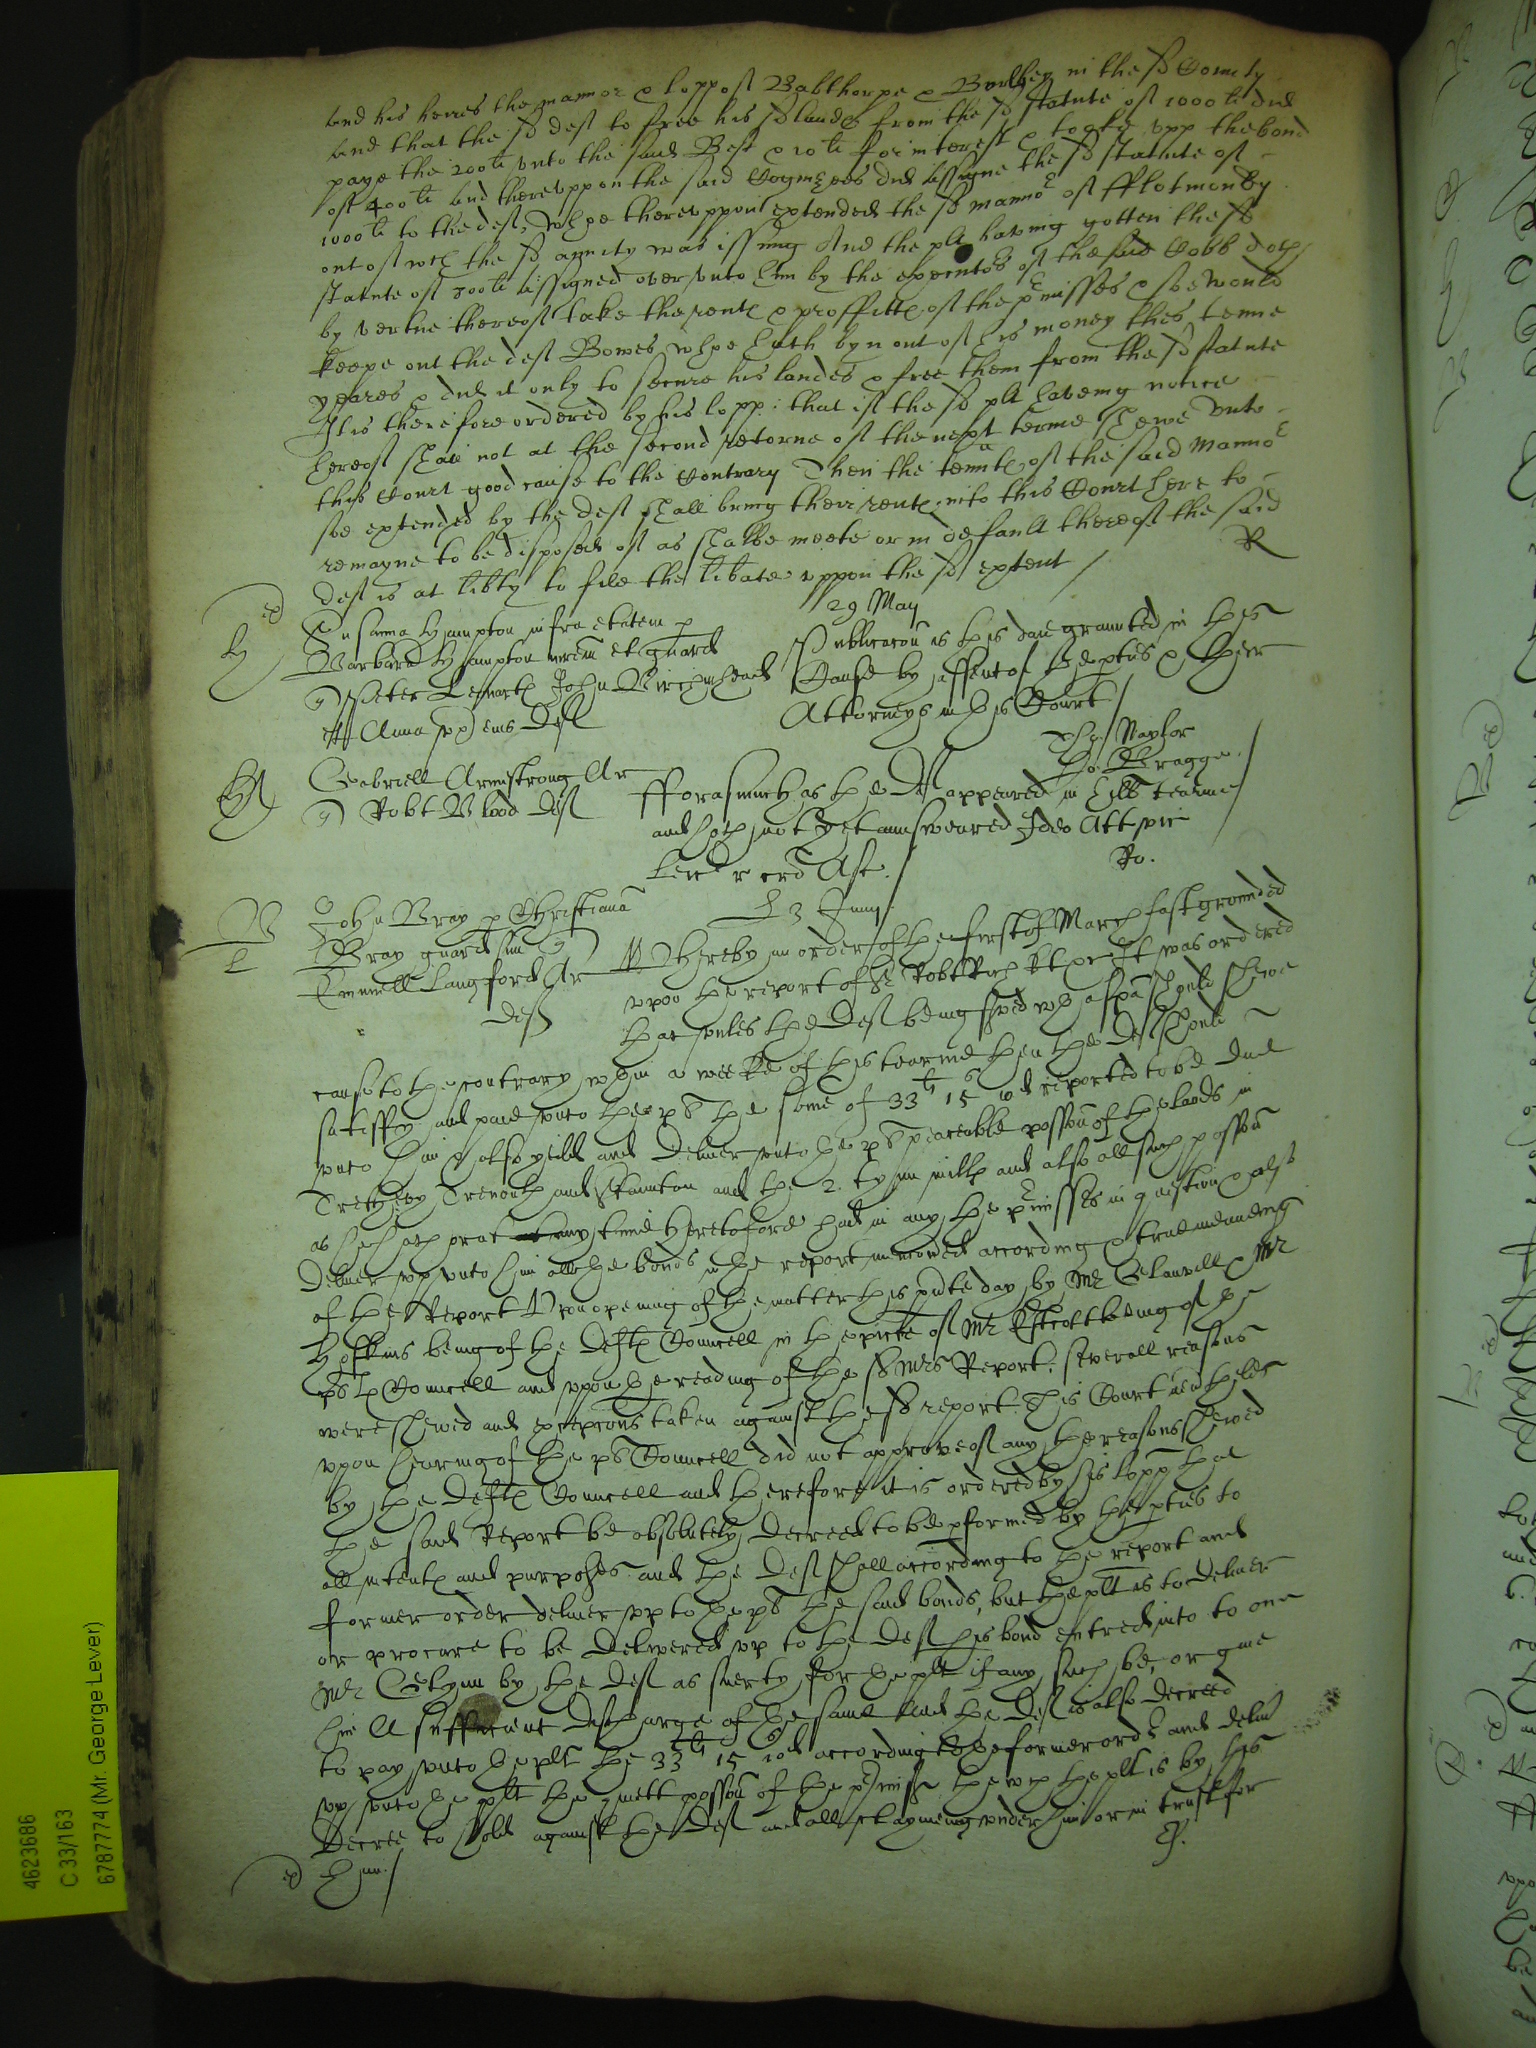 and his heires the mannor & lopp of Babthorpe & Burlbey in the sd County
and that the sd deft to free his sd lands from the sd statute of 1000 li did
paye the 200 li vnto the said Best & 10 li for interest & tooke vpp the bond
of 400 li and therevppon the said Cognizees did assigne the sd statute of
1000 li to the deft, whoe therevppon extended the sd mannor of fflotmanby
out of wch the sd anuity was issuing And the plt having gotten the sd
statute of 300 li assigned over vnto him by the executors of the said Cobb doth
by vertue thereof take the rents & proffitts of the pmisses & soe would
keepe out the deft Bowes whoe hath byn out of his money thes tenne
yeares & did it only to secure his landes & free them from the sd statute
It is therefore ordered by his lopp: that if the sd plt haveing notice
hereof shall not at the second retorne of the next terme shewe vnto
this Court good cause to the Contrary Then the tennts of the said Mannor
soe extended by the deft shall bring their rents into this Court here to
remayne to be disposed of as shalbe meete or in default thereof the said
deft is at libty to file the libate vppon the sd extent / R
29 May
Susanna Hampton infra etatem p
Barbara Hampton mrem et guard
Peter John
Anna vx eius Deft
Publicacon is this daie graunted in this
Cause by assent of the pties & their
Attorneys in this Court /
Naylor
Jo: Bragge
Gabriell Armstrong Ar
Robt Wood Deft
fforasmuch as the Deft appeared in Hill tearme
and hath not yet answeared Ideo Att vic
Ro.
3 Junij
John Bray p Christiana
Bray guard sua
Emanuell Langford Ar
Deft
Whereby an order of the first of March last grounded
vpon the report of Sr Robt Rich kt &c It was ordered
that vnles the Deft being served wth a spa should shewe
cause to the contrary wthin a weeke of this tearme then the Deft should
satisffy and paie vnto the pt the some of 33 li 15 s 10 d reported to be due
vnto him & also yeild and deliver vnto the pt peaceable possion of the lands in
Trethewy Trevouth and Stainton and the 2 tynn mills and also all such possion
as hath at any time heretofore had in any the pmisses in question & also
deliver vp vnto him all the bonds in the report menconed according & true meaneing
of the Report Vpon opening of the matter this pnte day by Mr Glanvill & Mr
Hoskins being of the Defts Councell in the pnce of Mr Estcott being of the
pts Councell and vpon the reading of the sd Mrs Report, severall reasons
were shewed and excepcons taken against the sd report. This Court neverthelesse
vpon hearing of the pts Councell did not approve of any the reasons shewed
by the Defts Councell and therefore it is ordered by his lopp that
the said Report be absolutely decreed to be pformed by the pties to
all intents and purposes and the Deft shall according to the report and
former order deliver vp to the pt the said bonds, but the plt is to deliver
or procure to be delivered vp to the Deft his bond entred into to one
Mr Glynn by the Deft as suerty for the plt if any such be, or give
him A sufficient discharge of the same And the Deft is also decreed
to pay vnto the plt the 33 li 15 s 10 d according to the former order and deliver
vp vnto the plt the quiett possion of the pmisses the wch the plt is by this
Decree to hold against the Deft and all clayming vnder him or in trust for
him /
4623686
C 33/163
6787774 (Mr. George Lever)